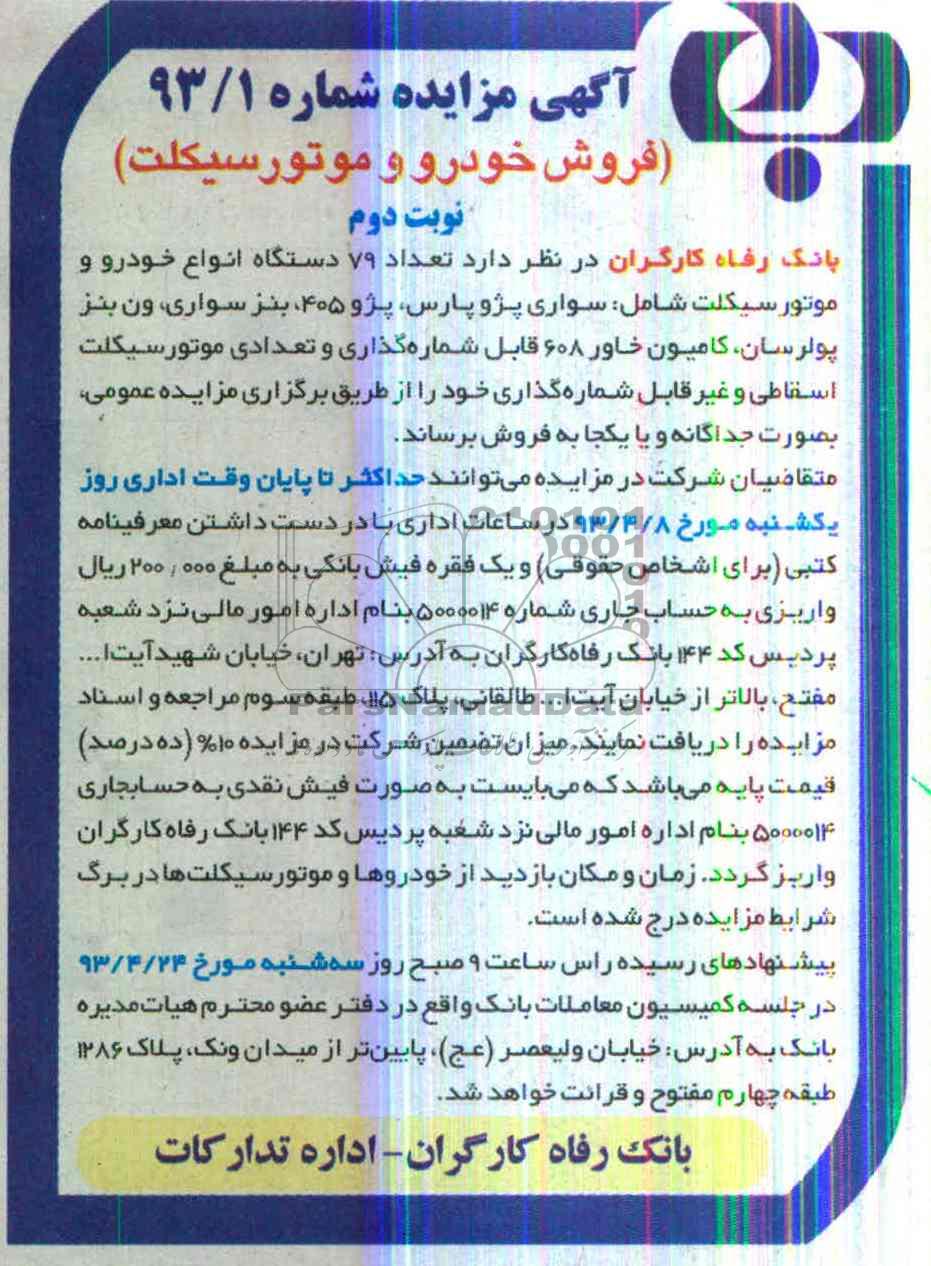 آگهی مزایده شماره ۹۳/۱
(فروش خودرو و موتور سیکلت)
نوبت دوم
بانک رفاه کارگران در نظر دارد تعداد ۷۹ دستگاه انواع خودرو و
موتور سیکلت شامل: سواری پژو پارس، پژو ۴۰۵، بنز سواری، ون بنز
پولرسان، کامیون خاور ۶۰۸ قابل شماره‌گذاری و تعدادی موتور سیکلت
اسقاطی و غیر قابل شماره‌گذاری خود را از طریق برگزاری مزایده عمومی،
بصورت جداگانه و یا یکجا به فروش برساند.
متقاضیان شرکت در مزایده می‌توانند حداکثر تا پایان وقت اداری روز
یکشنبه مورخ ۹۳/۴/۸ در ساعات اداری با در دست داشتن معرفینامه
کتبی (برای اشخاص حقوقی) و یک فقره فیش بانکی به مبلغ ۲۰۰,۰۰۰ ریال
واریزی به حساب جاری شماره ۵۰۰۰۰۱۴ بنام اداره امور مالی نزد شعبه
پردیس کد ۱۴۴ بانک رفاه کارگران به آدرس: تهران، خیابان شهید آیت‌ا...
مفتح، بالاتر از خیابان آیت‌ا... طالقانی، پلاک ۱۱۵، طبقه سوم مراجعه و اسناد
مزایده را دریافت نمایند. میزان تضمین شرکت در مزایده ۱۰% (ده درصد)
قیمت پایه می‌باشد که می‌بایست به صورت فیش نقدی به حسابجاری
۵۰۰۰۰۱۴ بنام اداره امور مالی نزد شعبه پردیس کد ۱۴۴ بانک رفاه کارگران
واریز گردد. زمان و مکان بازدید از خودروها و موتور سیکلت‌ها در برگ
شرایط مزایده درج شده است.
پیشنهادهای رسیده راس ساعت ۹ صبح روز سه‌شنبه مورخ ۹۳/۴/۲۴
در جلسه کمیسیون معاملات بانک واقع در دفتر عضو محترم هیات مدیره
بانک به آدرس: خیابان ولیعصر (عج)، پایین‌تر از میدان ونک، پلاک ۱۲۸۶
طبقه چهارم مفتوح و قرائت خواهد شد.
بانک رفاه کارگران - اداره تدارکات
ParsNamadData